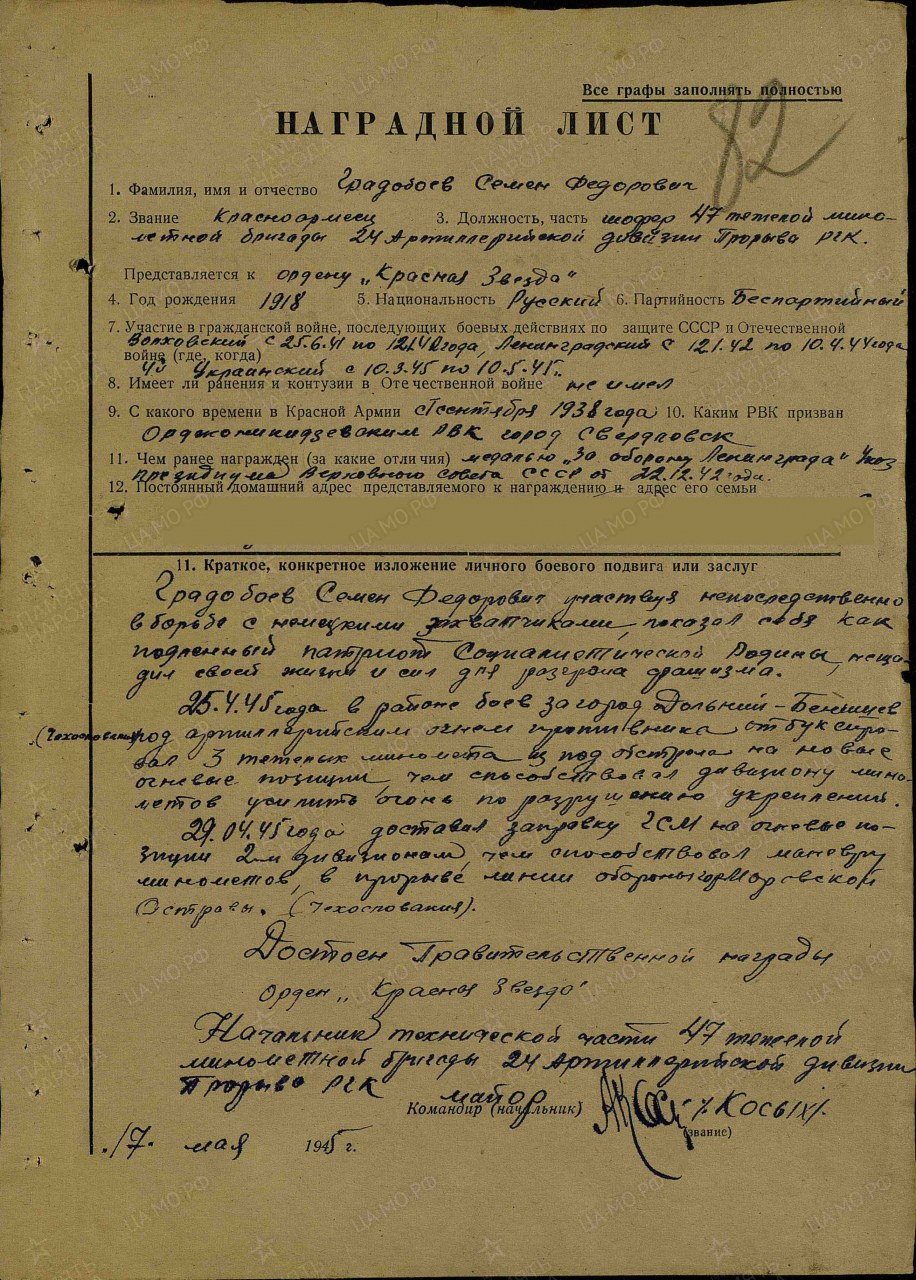 Все графы заполнять полностью
82
НАГРАДНОЙ ЛИСТ
1. Фамилия, имя и отчество Градобоев Семен Федорович
2. Звание Красноармеец 3. Должность, часть шофер 47 тежелой мино-
метной бригады 24 Артиллерийской дивизии Прорыва РГК.
Представляется к ордену „Красная Звезда"
4. Год рождения 1918 5. Национальность Русский 6. Партийность Беспартийный
7. Участие в гражданской войне, последующих боевых действиях по защите СССР и Отечественной
Волховский с 25.6.41 по 12.1.42 года, Ленинградский с 12.1.42 по 10.4.44 года
войне (где, когда)
4й Украинский с 10.3.45 по 10.5.45г.
8. Имеет ли ранения и контузии в Отечественной войне не имел
9. С какого времени в Красной Армии с 1 сентября 1938 года 10. Каким РВК призван
Орджоникидзевским РВК город Свердловск
11. Чем ранее награжден (за какие отличия) медалью „За оборону Ленинграда" Указ
президиума Верховного совета СССР от 22.12.42 года.
12. Постоянный домашний адрес представляемого к награждению и адрес его семьи
11. Краткое, конкретное изложение личного боевого подвига или заслуг
Градобоев Семен Федорович участвуя непоследственно
в борьбе с немецкими захватчиками, показал себя как
подленный патриот Социалистической Родины, неща-
дил своей жизни и сил для разгрома фашизма.
25.4.45 года в районе боев за город Дольний-Бенишев
(Чехословакия) под артиллерийским огнем противника отбуксиро-
вал 3 тежелых миномета из под обстрела на новые
огневые позиции, чем способствовал дивизиону мино-
метов усилить огонь по разрушению укреплений.
29.04.45 года доставил заправку ГСМ на огневые по-
зиции 2-м дивизионам, чем способствовал маневру
минометов, в прорыве линии обороны гор Моравской
Остравы. (Чехословакия).
Достоен Правительственной награды
Орден „Красная Звезда"
Начальник технической части 47 тежелой
минометной бригады 24 Артиллерийской дивизии
Прорыва РГК майор
Командир (начальник) /Косых/.
(звание)
„17" мая 1945 г.